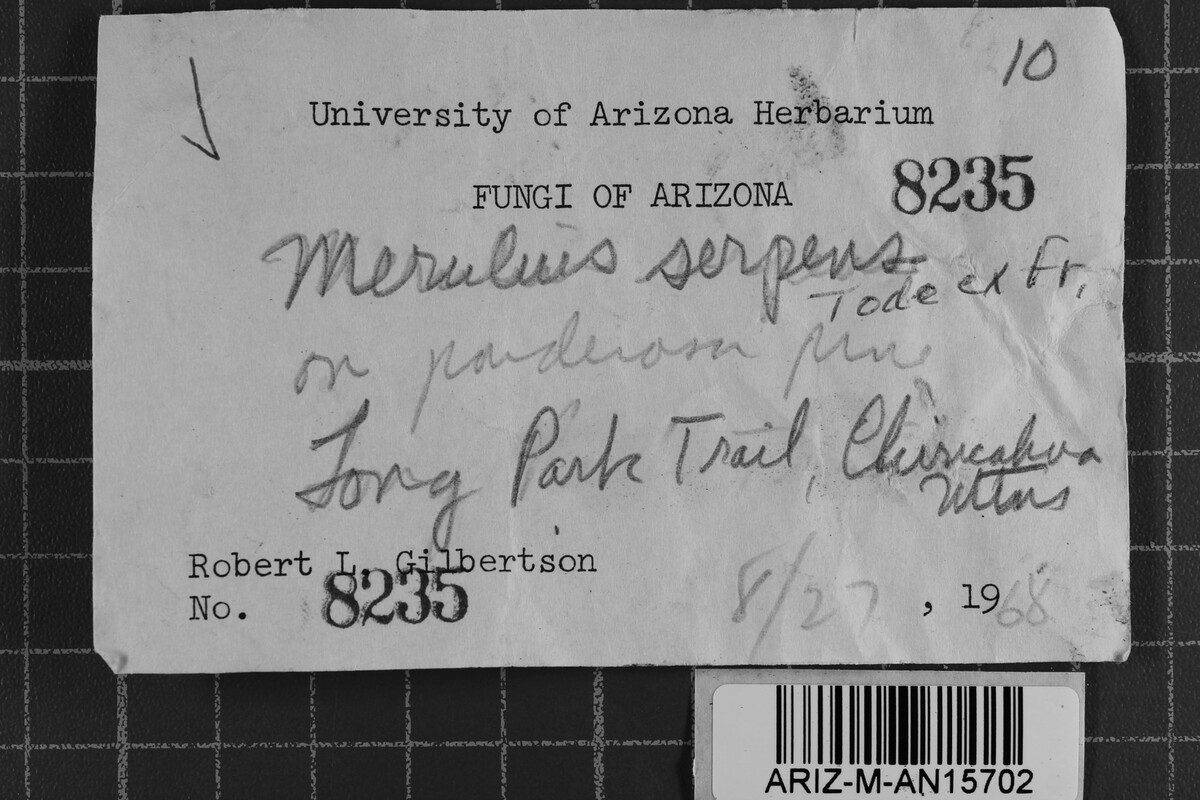 10
University of Arizona Herbarium
FUNGI OF ARIZONA 8235
Merulius serpens
Tode ex Fr.
on ponderosa pine
Long Park Trail, Chiricahua
Mtns
Robert L. Gilbertson
No. 8235
8/27, 1968
ARIZ-M-AN15702